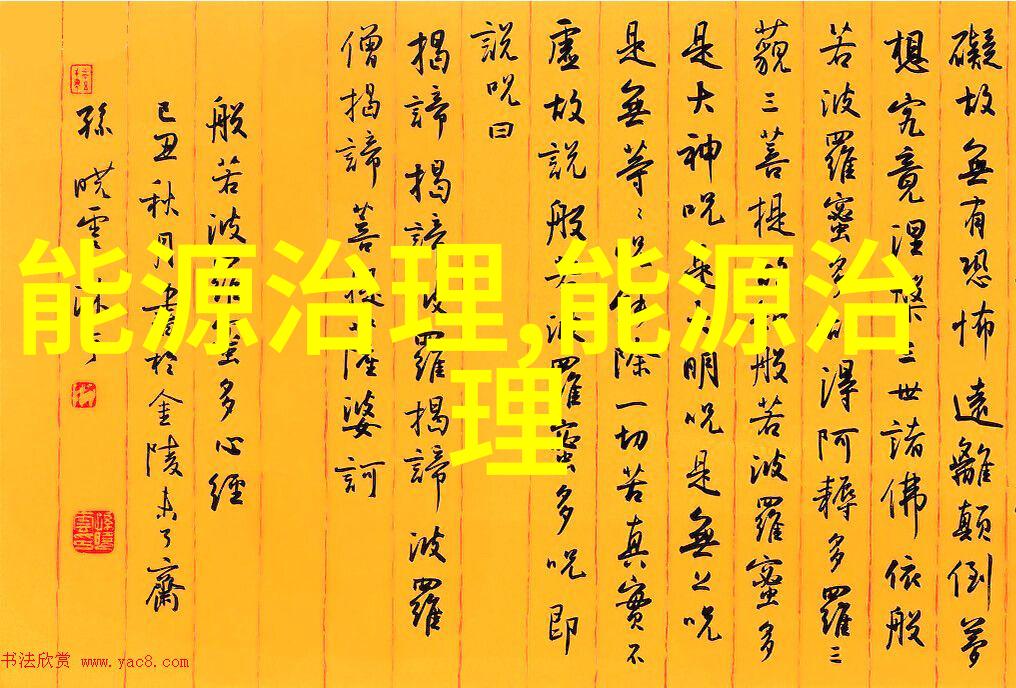 礙故無有恐怖遠離顛倒夢
想究竟涅槃三世諸佛依般
若波羅蜜多故得阿耨多羅三
藐三菩提 般若波羅蜜多
是大神咒是大明咒是無上咒
是無等〻咒 除一切苦真實不
虛故說般若波羅蜜多咒即
說咒曰
揭諦揭諦波羅揭諦波羅
僧揭諦菩提薩婆訶
般若波羅蜜多心經
己丑秋月書於金陵未了齋
孫曉雲
能源治理,能源治
理
书法欣赏 www.yac8.com